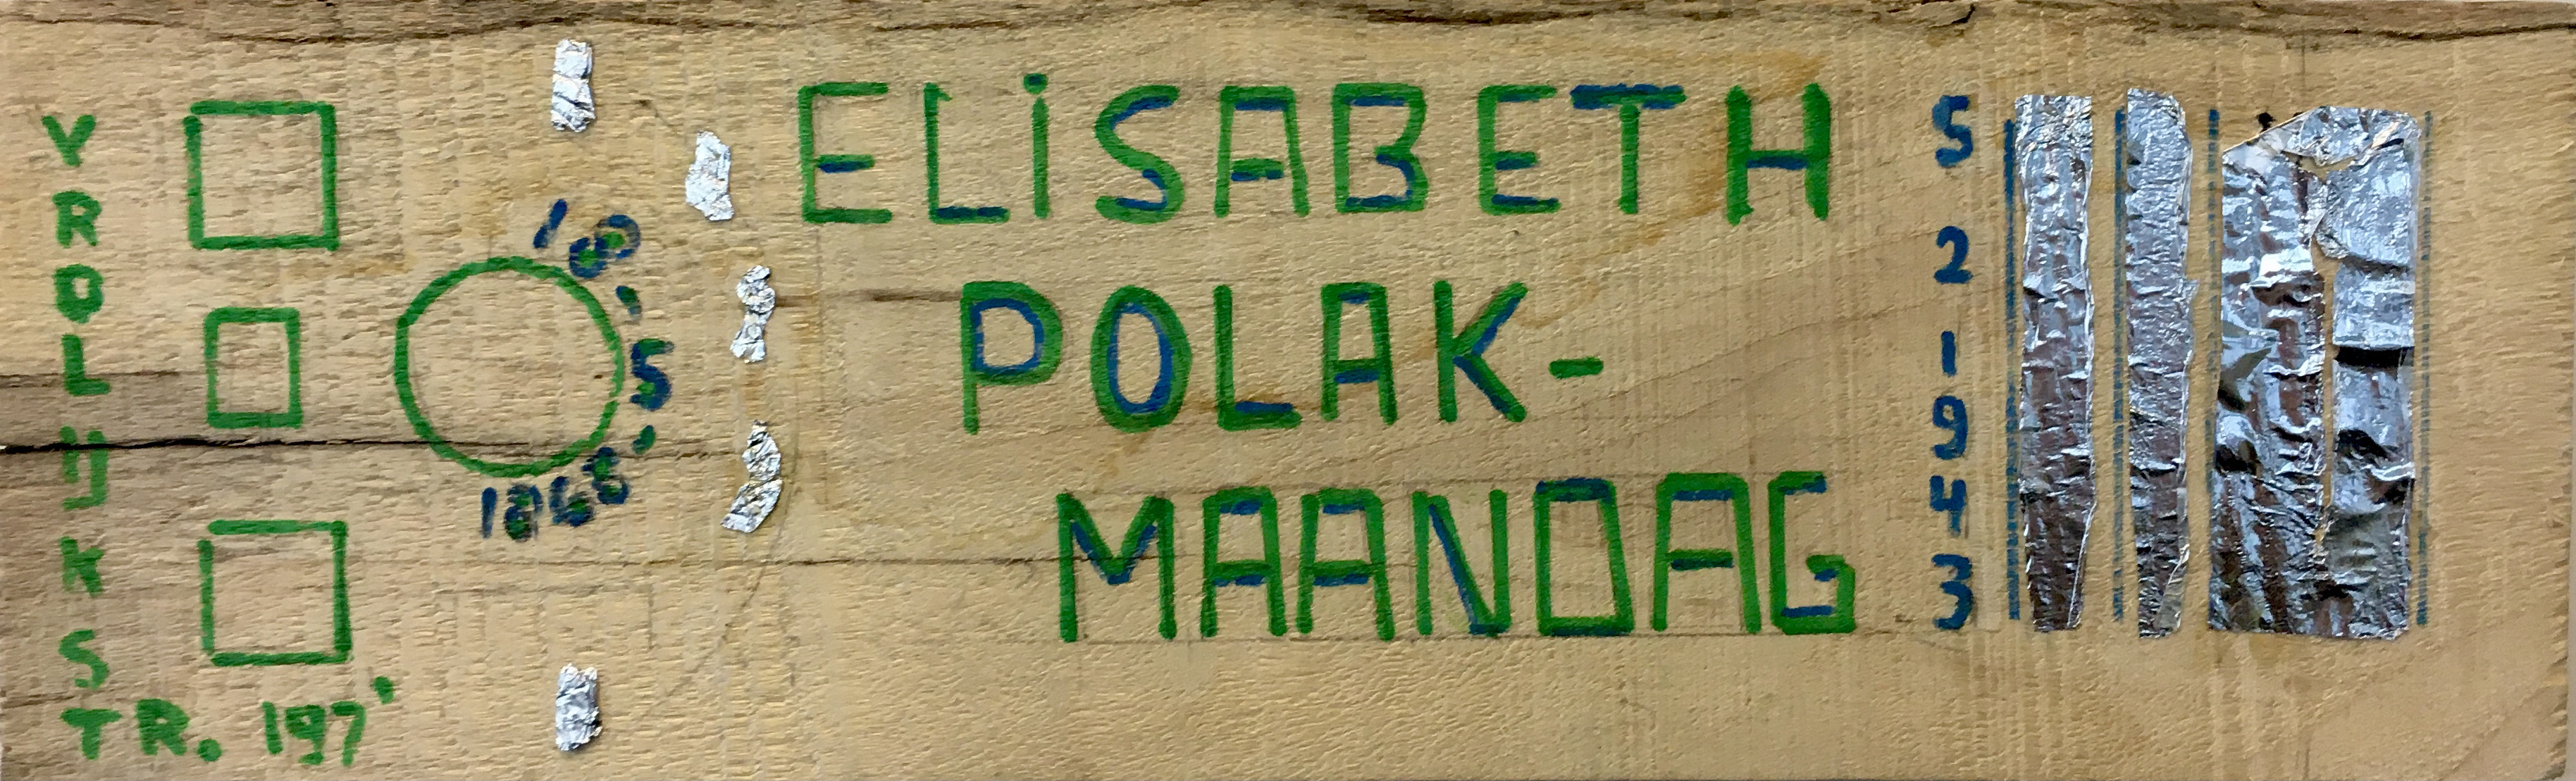 VROLIJKSTR. 197'
18'5'1868
ELiSABETH
POLAK-
MAANDAG
5 2 1943